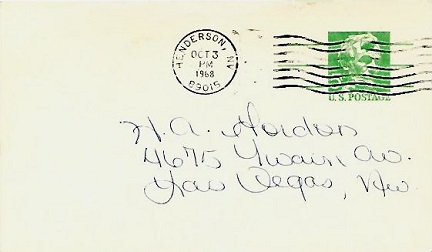 HENDERSON, NV
OCT 3
PM
1968
89015
U.S. POSTAGE
H. A. Hordon
4675 Twain Av.
Las Vegas, Nev.